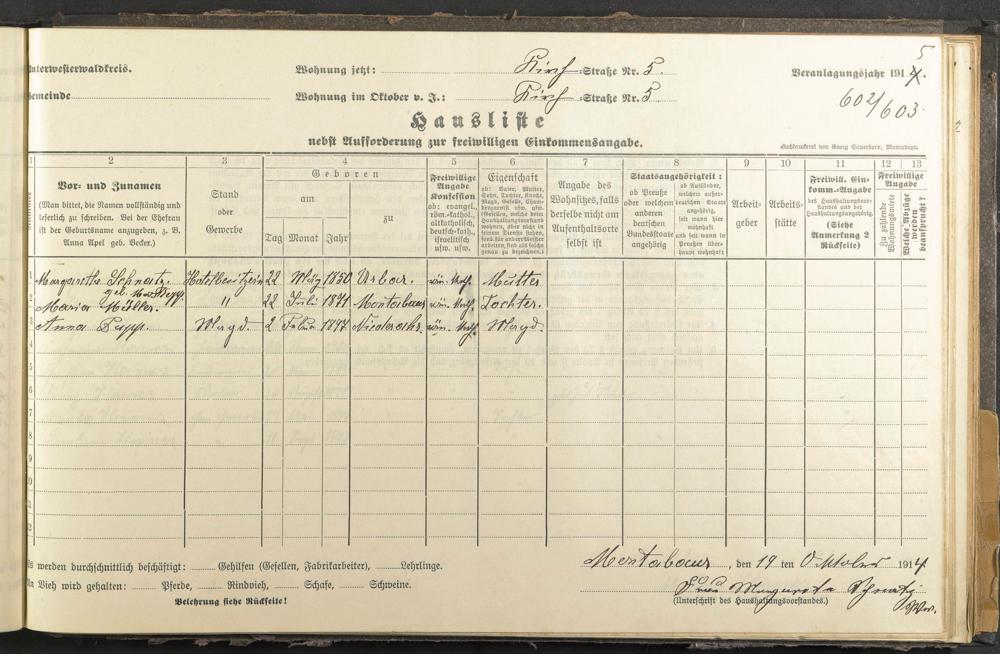 5
Unterwesterwaldkreis.
Wohnung jetzt: Kirch-Straße Nr. 5.
Veranlagungsjahr 1914.
Gemeinde
Wohnung im Oktober v. J.: Kirch-Straße Nr. 5.
602/603.
Hausliste
nebst Aufforderung zur freiwilligen Einkommensangabe.
Buchdruckerei von Georg Sauerborn, Montabaur.
1 2 3 4 5 6 7 8 9 10 11 12 13
Vor- und Zunamen
(Man bittet, die Namen vollständig und
leserlich zu schreiben. Bei der Ehefrau
ist der Geburtsname anzugeben, z. B.
Anna Apel geb. Becker.)
Stand
oder
Gewerbe
Geboren
am
zu
Tag Monat Jahr
Freiwillige
Angabe
Konfession
ob: evangel.,
röm.-kathol.,
altkatholisch,
deutsch-kath.,
israelitisch
usw. usw.
Eigenschaft
ob: Vater, Mutter,
Sohn, Tochter, Knecht,
Magd, Geselle, Cham-
bregarnist usw. usw.
(Gesellen, welche beim
Haushaltungsvorstand
wohnen, aber nicht in
seinem Dienste stehen,
sond. für andere Meister
arbeiten, sind als solche
genau zu bezeichnen.)
Angabe des
Wohnsitzes, falls
derselbe nicht am
Aufenthaltsorte
selbst ist
Staatsangehörigkeit:
ob Preuße
oder welchem
anderen
deutschen
Bundesstaate
angehörig
ob Ausländer,
welchem außer-
deutschen Staate
angehörig,
seit wann hier
wohnhaft
und
seit wann in
Preußen über-
haupt wohnhaft
Arbeit-
geber
Arbeits-
stätte
Freiwill. Ein-
komm.-Angabe
des Haushaltungsvor-
standes und der
Haushaltungsangehörig.
(Siehe
Anmerkung 2
Rückseite)
Freiwillige
Angabe
Zu zahlende
Wohnungsmiete
Welche Abzüge
werden
beansprucht?
1 Margarethe Schnatz. Hotelbesitzerin 22 März 1850 Urbar. röm. kath. Mutter
2 Maria Müller. " 22. Juli 1871 Montabaur röm. kath. Tochter.
3 Anna Pupp. Magd. 2 1897 röm. kath. Magd.
4
5
6
7
8
9
10
11
12
Es werden durchschnittlich beschäftigt: Gehilfen (Gesellen, Fabrikarbeiter), Lehrlinge.
An Vieh wird gehalten: Pferde, Rindvieh, Schafe, Schweine.
Belehrung siehe Rückseite!
Montabaur, den 19 ten Oktober 1914
Frau Margareta Schnatz
Wwe.
(Unterschrift des Haushaltungsvorstandes.)